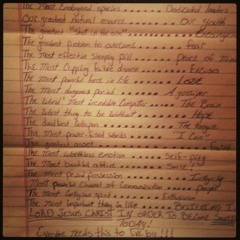 The Most Endangered species . . . . Dedicated leaders
Our greatest natural resource . . . . Our Youth
The greatest "Shot in the arm" . . . . Encouragement
The greatest problem to overcome . . . . Fear
The Most effective sleeping pill . . . . Peace of Mind
The Most Crippling failure disease . . . . Excuses
The most powerful force in life . . . . Love
The most dangerous pariah . . . . A gossiper
The World's Most incredible Computer . . . . The Brain
The Worst thing to be without . . . . Hope
The Deadliest Weapon . . . . The Tongue
The Most power-filled words . . . . "I Can"
The greatest asset . . . . Faith
The most worthless emotion . . . . Self-pity
The Most beautiful attire . . . . Smile!
The most prized possession . . . . Integrity
The Most powerful channel of communication . . . . Prayer
The most contagious spirit . . . . Enthusiasm
The most important thing in life . . . . BELIEVING IN
LORD JESUS CHRIST IN ORDER TO BECOME SAVED
TODAY!
Greatest needs this to live by!!!